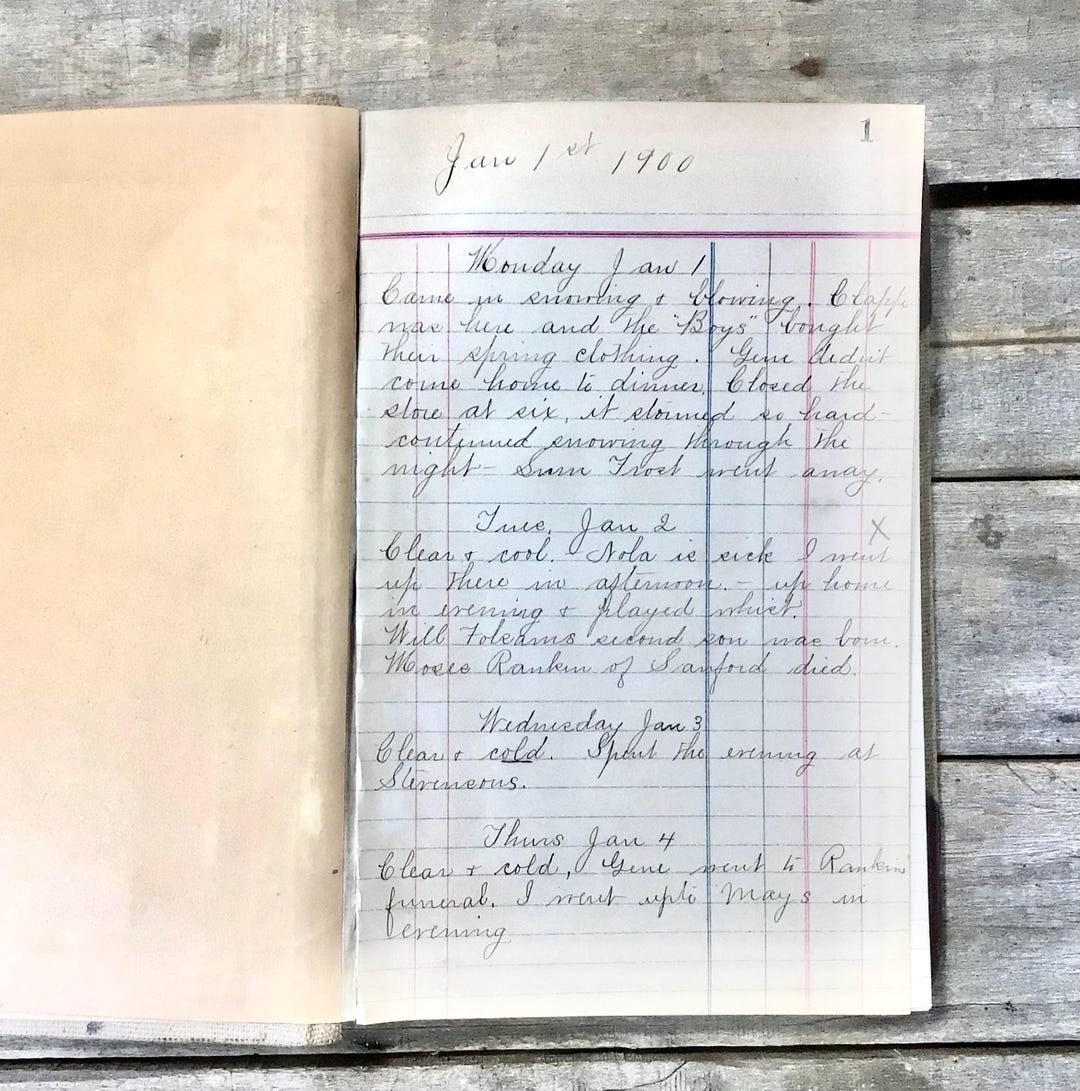 1
Jan 1st 1900
Monday Jan 1
Came in snowing & blowing. Clapp
was here and the "Boys" bought
their spring clothing. Gene didn't
come home to dinner. Closed the
store at six, it stormed so hard -
continued snowing through the
night - Sum Frost went away.
Tues, Jan 2
X
Clear & cool. Nola is sick I went
up there in afternoon. - up home
in evening & played whist.
Will Folsams second son was born.
Moses Rankin of Sanford died.
Wednesday Jan 3
Clear & cold. Spent the evening at
Stevensons.
Thurs Jan 4
Clear & cold, Gene went to Rankins
funeral. I went upto Mays in
evening